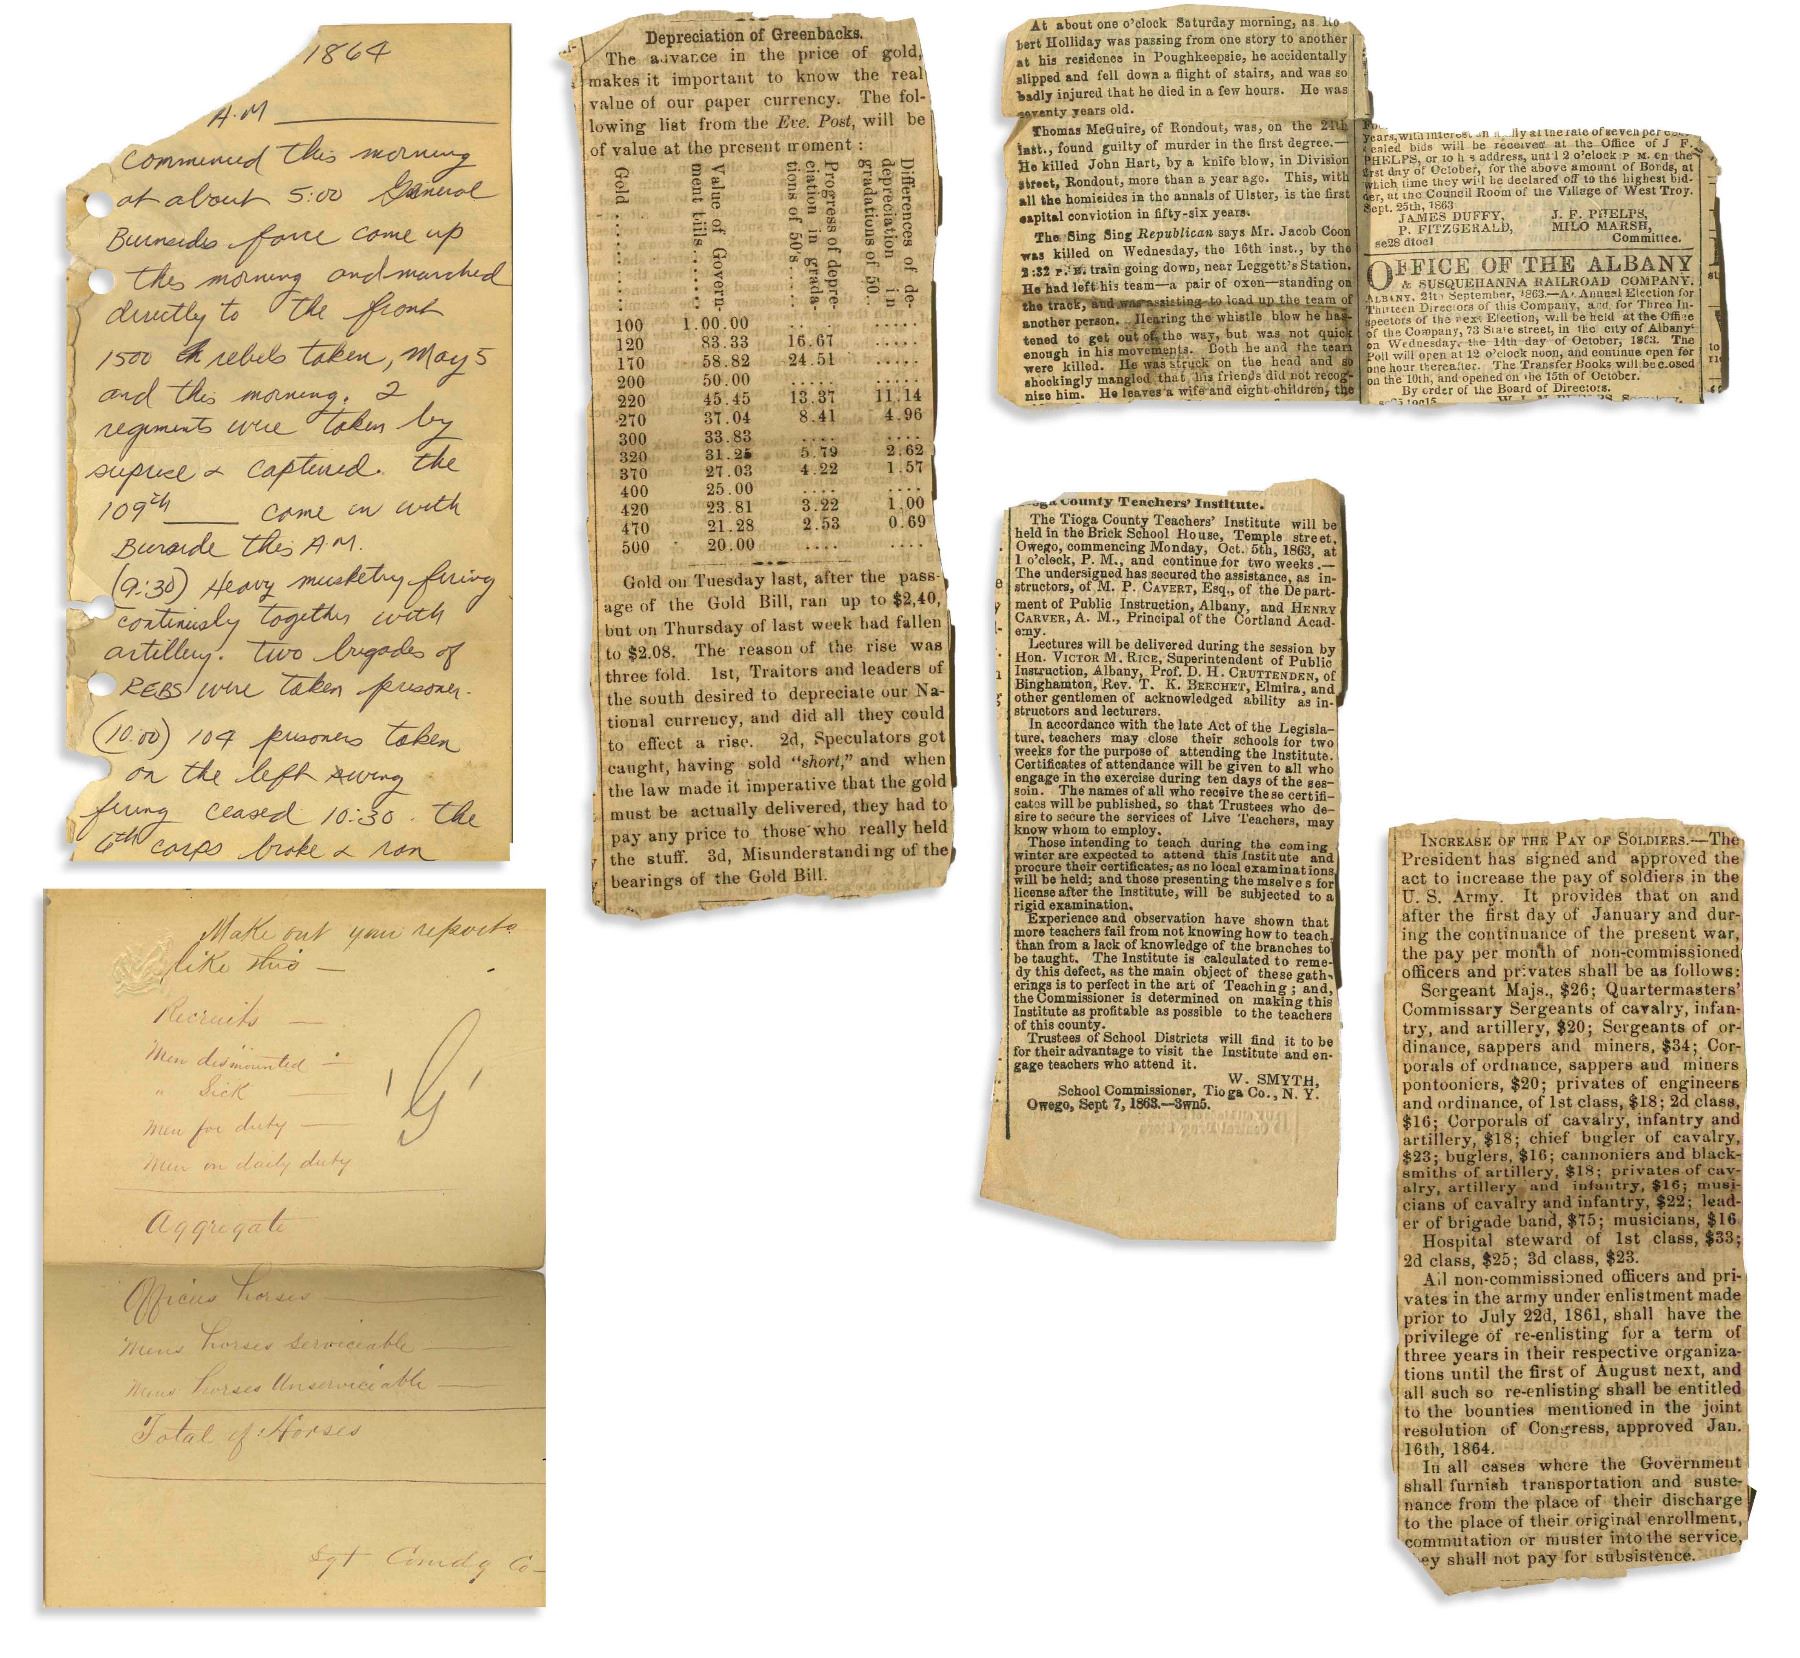 1864
A.M
commenced this morning
at about 5:00 General
Burnsides force come up
this morning and marched
directly to the front
1500 rebels taken, May 5
and this morning. 2
regiments were taken by
suprise & captured. the
109th ____ come in with
Burnside this A.M.
(9:30) Heavy musketry firing
continusly together with
artillery. two brigades of
REBS were taken prisoner.
(10:00) 104 prisoners taken
on the left wing
firing ceased 10:30. the
6th corps broke & ran
Make out your reports
like this —
Recruits —
Men dismounted —
" Sick —
Men for duty —
Men on daily duty
Aggregate
Officers horses —
Mens horses Serviceable —
Mens horses Unserviciable —
Total of Horses
Sgt Comdg Co
Depreciation of Greenbacks.
The advance in the price of gold,
makes it important to know the real
value of our paper currency. The fol-
lowing list from the Eve. Post, will be
of value at the present moment :
Gold ........
Value of Govern-
ment bills.......
Progress of depre-
ciation in grada-
tions of 50's....
Differences of de-
preciation in
gradations of 50..
100 1.00.00 ..... .....
120 83.33 16.67 .....
170 58.82 24.51 .....
200 50.00 ..... .....
220 45.45 13.37 11.14
270 37.04 8.41 4.96
300 33.83 .... ....
320 31.25 5.79 2.62
370 27.03 4.22 1.57
400 25.00 .... ....
420 23.81 3.22 1.00
470 21.28 2.53 0.69
500 20.00 .... ....
Gold on Tuesday last, after the pass-
age of the Gold Bill, ran up to $2,40,
but on Thursday of last week had fallen
to $2.08. The reason of the rise was
three fold. 1st, Traitors and leaders of
the south desired to depreciate our Na-
tional currency, and did all they could
to effect a rise. 2d, Speculators got
caught, having sold "short," and when
the law made it imperative that the gold
must be actually delivered, they had to
pay any price to those who really held
the stuff. 3d, Misunderstanding of the
bearings of the Gold Bill.
At about one o'clock Saturday morning, as Ro
bert Holliday was passing from one story to another
at his residence in Poughkeepsie, he accidentally
slipped and fell down a flight of stairs, and was so
badly injured that he died in a few hours. He was
seventy years old.
Thomas McGuire, of Rondout, was, on the 24th
inst., found guilty of murder in the first degree.—
He killed John Hart, by a knife blow, in Division
street, Rondout, more than a year ago. This, with
all the homicides in the annals of Ulster, is the first
capital conviction in fifty-six years.
The Sing Sing Republican says Mr. Jacob Coon
was killed on Wednesday, the 16th inst., by the
2:32 P. M. train going down, near Leggett's Station.
He had left his team—a pair of oxen—standing on
the track, and was assisting to load up the team of
another person. Hearing the whistle blow he has-
tened to get out of the way, but was not quick
enough in his movements. Both he and the team
were killed. He was struck on the head and so
shockingly mangled that his friends did not recog-
nize him. He leaves a wife and eight children, the
years, with interest annually at the rate of seven per cent
sealed bids will be received at the Office of J F.
PHELPS, or to his address, until 2 o'clock P M. on the
first day of October, for the above amount of Bonds, at
which time they will be declared off to the highest bid-
der, at the Council Room of the Village of West Troy.
Sept. 25th, 1863
JAMES DUFFY, J. F. PHELPS,
P. FITZGERALD, MILO MARSH,
se28 dtoc1 Committee.
OFFICE OF THE ALBANY
& SUSQUEHANNA RAILROAD COMPANY.
ALBANY, 21st September, 1863.—An Annual Election for
Thirteen Directors of this Company, and for Three In-
spectors of the next Election, will be held at the Office
of the Company, 73 State street, in the city of Albany
on Wednesday, the 14th day of October, 1863. The
Poll will open at 12 o'clock noon, and continue open for
one hour thereafter. The Transfer Books will be closed
on the 10th, and opened on the 15th of October.
By order of the Board of Directors.
Tioga County Teachers' Institute.
The Tioga County Teachers' Institute will be
held in the Brick School House, Temple street,
Owego, commencing Monday, Oct. 5th, 1863, at
1 o'clock, P. M., and continue for two weeks.—
The undersigned has secured the assistance, as in-
structors, of M. P. CAVERT, Esq., of the Depart-
ment of Public Instruction, Albany, and HENRY
CARVER, A. M., Principal of the Cortland Acad-
emy.
Lectures will be delivered during the session by
Hon. VICTOR M. RICE, Superintendent of Public
Instruction, Albany, Prof. D. H. CRUTTENDEN, of
Binghamton, Rev. T. K. BEECHET, Elmira, and
other gentlemen of acknowledged ability as in-
structors and lecturers.
In accordance with the late Act of the Legisla-
ture, teachers may close their schools for two
weeks for the purpose of attending the Institute.
Certificates of attendance will be given to all who
engage in the exercise during ten days of the ses-
soin. The names of all who receive these certifi-
cates will be published, so that Trustees who de-
sire to secure the services of Live Teachers, may
know whom to employ.
Those intending to teach during the coming
winter are expected to attend this Institute and
procure their certificates, as no local examinations
will be held; and those presenting themselves for
license after the Institute, will be subjected to a
rigid examination.
Experience and observation have shown that
more teachers fail from not knowing how to teach,
than from a lack of knowledge of the branches to
be taught. The Institute is calculated to reme-
dy this defect, as the main object of these gath-
erings is to perfect in the art of Teaching ; and,
the Commissioner is determined on making this
Institute as profitable as possible to the teachers
of this county.
Trustees of School Districts will find it to be
for their advantage to visit the Institute and en-
gage teachers who attend it.
W. SMYTH,
School Commissioner, Tioga Co., N. Y.
Owego, Sept 7, 1863.—3wn5.
INCREASE OF THE PAY OF SOLDIERS.—The
President has signed and approved the
act to increase the pay of soldiers in the
U. S. Army. It provides that on and
after the first day of January and dur-
ing the continuance of the present war,
the pay per month of non-commissioned
officers and privates shall be as follows:
Sergeant Majs., $26; Quartermasters'
Commissary Sergeants of cavalry, infan-
try, and artillery, $20; Sergeants of or-
dinance, sappers and miners, $34; Cor-
porals of ordnance, sappers and miners
pontooniers, $20; privates of engineers
and ordinance, of 1st class, $18; 2d class,
$16; Corporals of cavalry, infantry and
artillery, $18; chief bugler of cavalry,
$23; buglers, $16; cannoniers and black-
smiths of artillery, $18; privates of cav-
alry, artillery and infantry, $16; musi-
cians of cavalry and infantry, $22; lead-
er of brigade band, $75; musicians, $16
Hospital steward of 1st class, $33;
2d class, $25; 3d class, $23.
All non-commissioned officers and pri-
vates in the army under enlistment made
prior to July 22d, 1861, shall have the
privilege of re-enlisting for a term of
three years in their respective organiza-
tions until the first of August next, and
all such so re-enlisting shall be entitled
to the bounties mentioned in the joint
resolution of Congress, approved Jan.
16th, 1864.
In all cases where the Government
shall furnish transportation and suste-
nance from the place of their discharge
to the place of their original enrollment,
commutation or muster into the service,
ey shall not pay for subsistence.